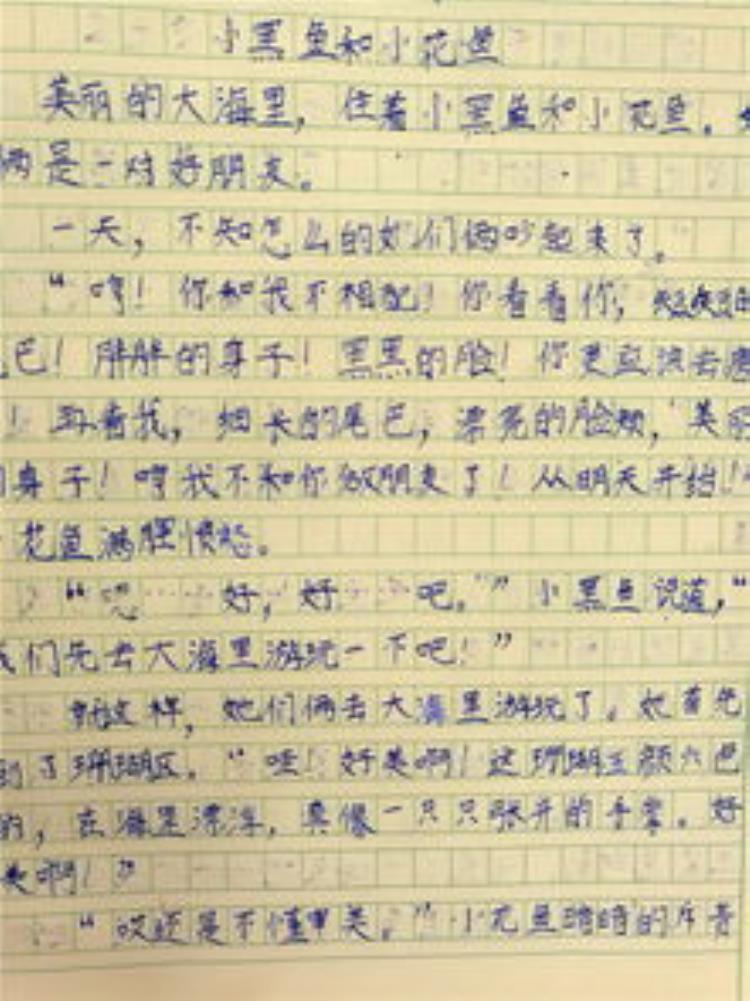 小黑鱼和小花鱼
美丽的大海里，住着小黑鱼和小花鱼。
俩是一对好朋友。
一天，不知怎么的她们俩吵起来了。
“哼！你和我不相配！你看看你，短短的
巴！胖胖的身子！黑黑的脸！你更应该去
！再看我，细长的尾巴，漂亮的脸颊，美丽
身子！哼我不和你做朋友了！从明天开始！”
花鱼满腔愤怒。
“恩……好，好……吧。”小黑鱼说道，“
我们先去大海里游玩一下吧！”
就这样，她们俩去大海里游玩了。她首先
到了珊瑚区。“哇！好美啊！这珊瑚五颜六色
的，在海里漂浮，真像一只只张开的手掌。好
美啊！”
“哎还是不懂审美。”小花鱼暗暗的